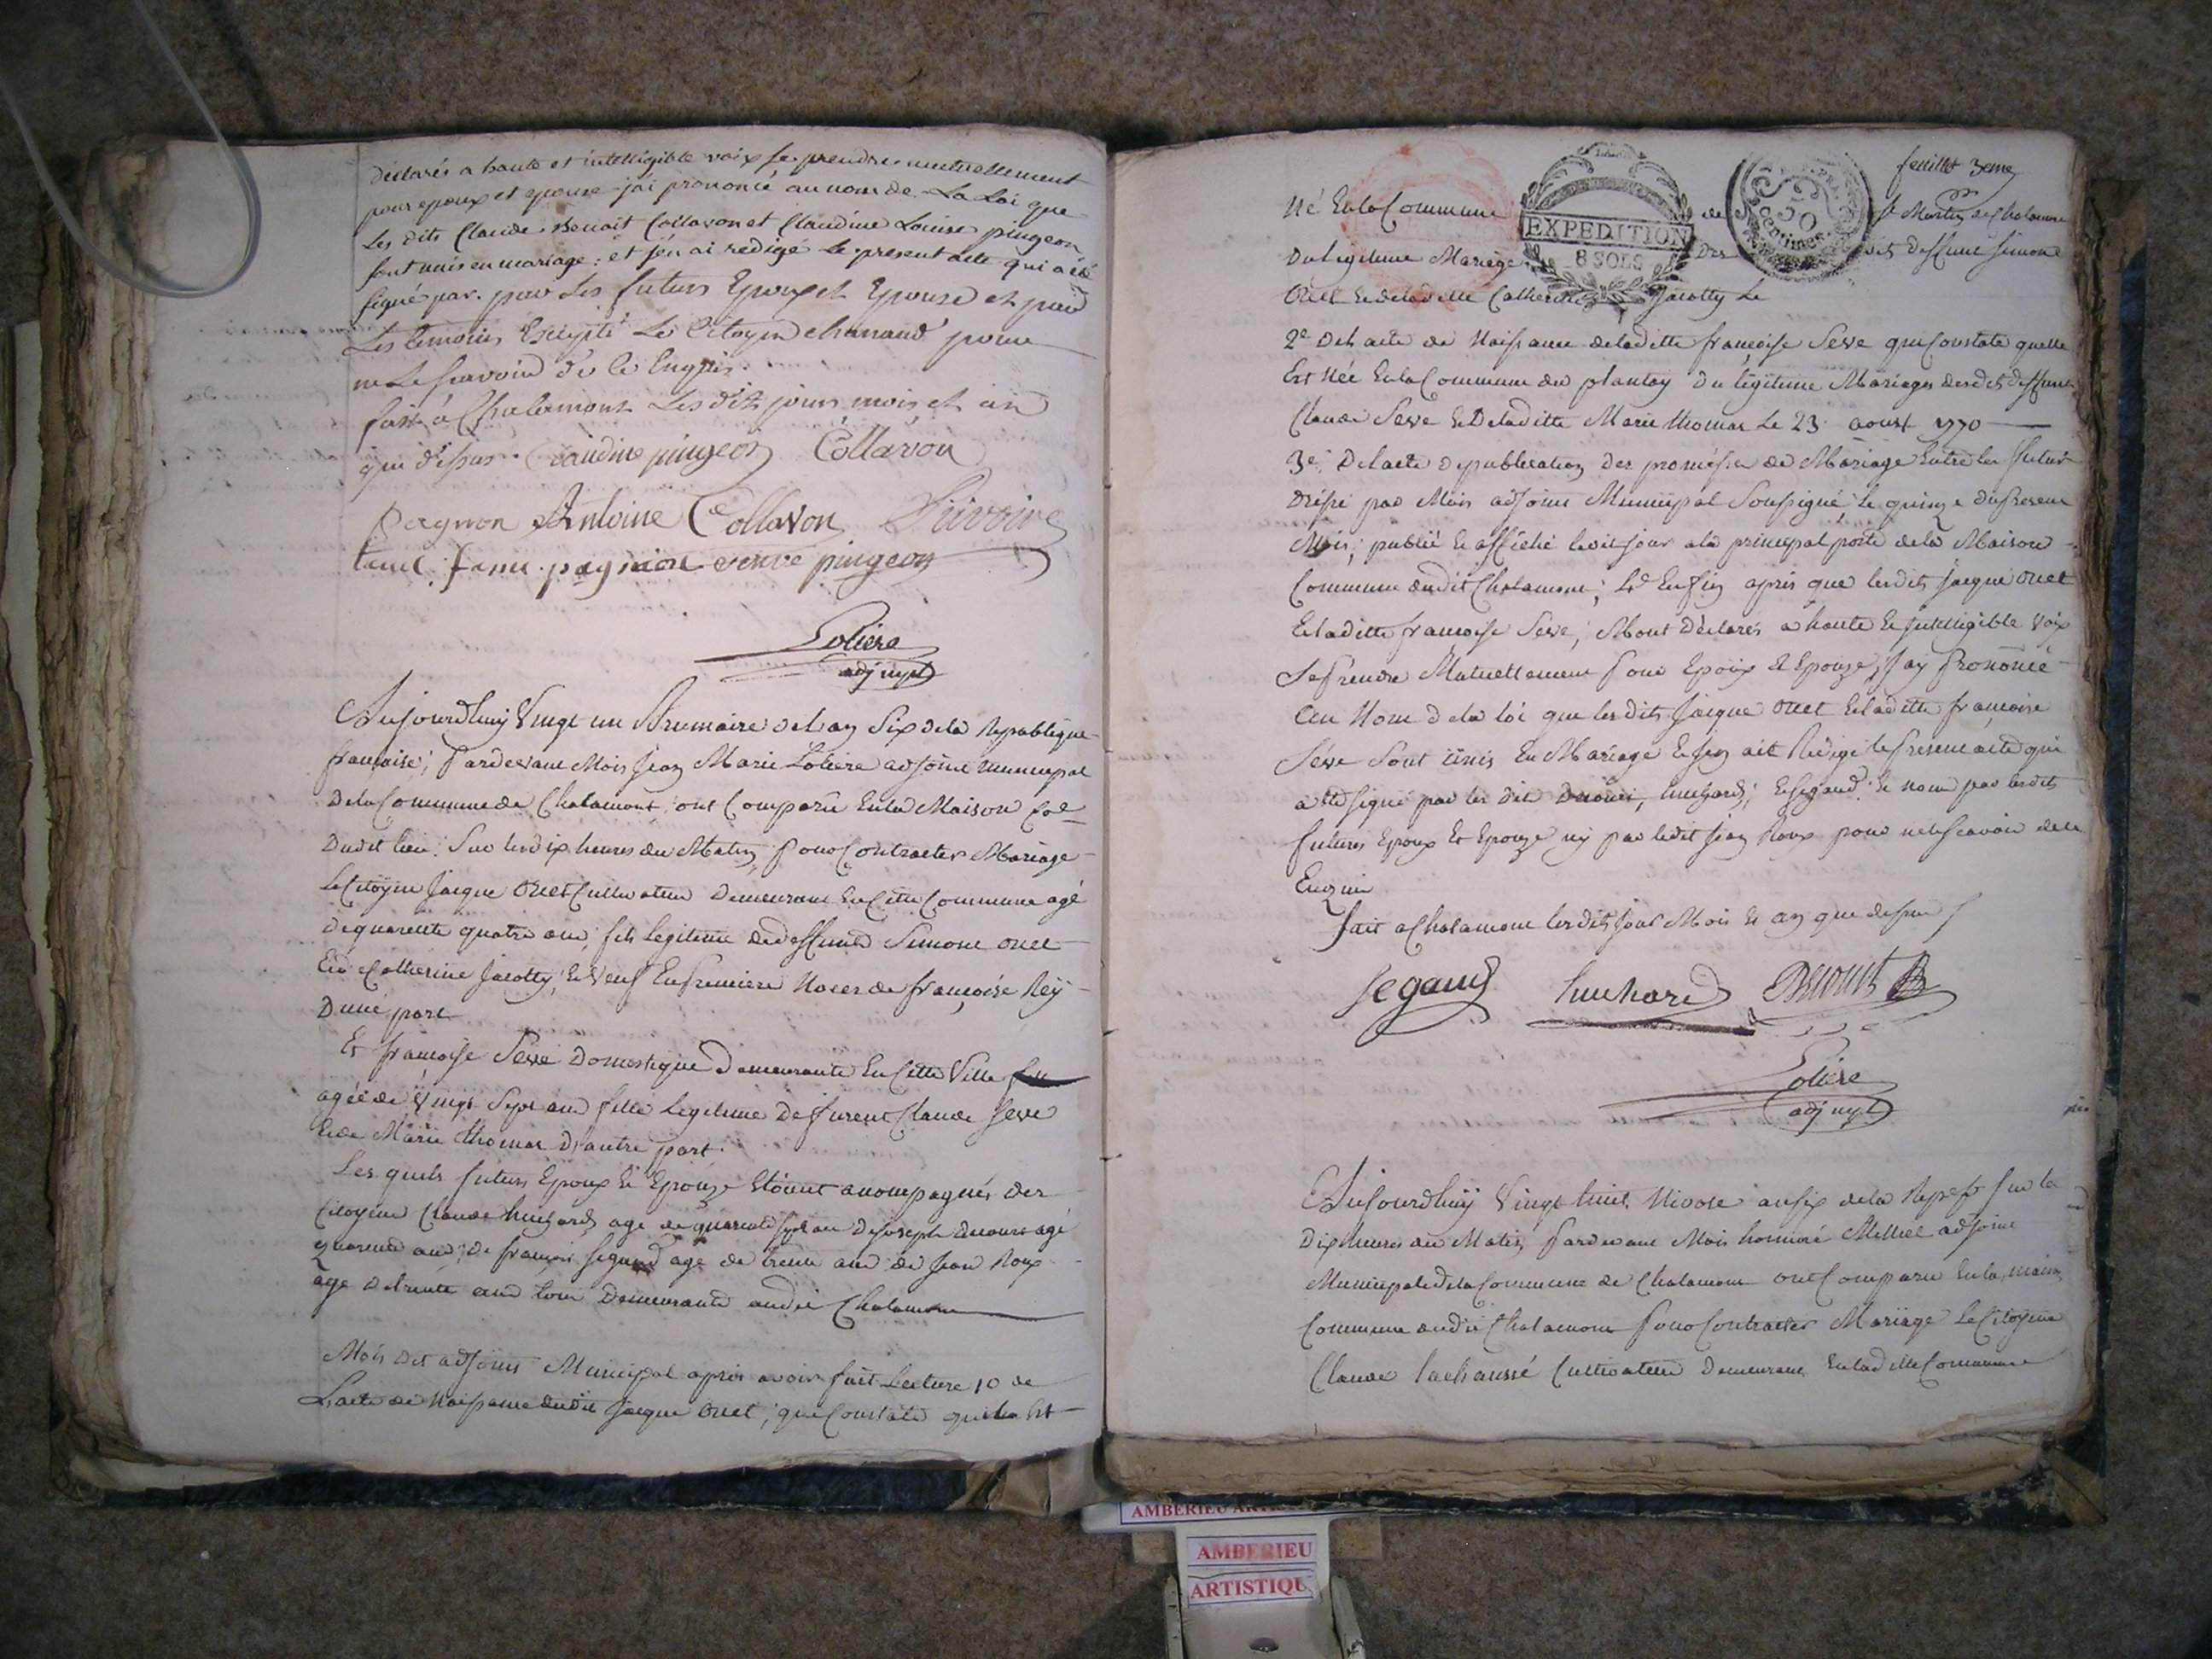 déclarés a haute et intelligible voix se prendre mutuellement
pour epoux et epouse j'ai prononcé au nom de La Loi que
Les dits Claude Benoit Collavon et Claudine Louise pingeon
sont unis en mariage : et j'en ai redigé Le present acte qui a été
signé par. par Les futurs Epoux et Epouse et par
Les temoins Excepté Le Citoyen chanaud pour
ne Le scavoir de ce Enquis.
fait à Chalamont Les dits jours mois et an
que dessus. Claudine pingeon Collavon
pagnon Antoine Collavon
pagnion veuve pingeon
Loliere
adj mpl
Aujourdhuy Vingt un Brumaire de Lan Six de la Republique
francaise; Pardevant Mois Jean Marie Loliere adjoint municipal
De la Commune de Chalamont ont Comparu En la Maison Coe
Dudit lieu. Sur les dix heures du Matin pour Contracter Mariage
Le Citoyen Jacque Ouet Cultivateur Demeurant En Cette Commune agé
de quarente quatre ans, fils legitime de deffunt Simone ouet
Et Catherine Jacotty, Et Veuf En premiere Noces de françoise Rey
Dune part
Et françoise Seve Domestique Demeurante En Cette Ville
agée de Vingt Sept ans fille Legitime Deffunt Claude Seve
Et de Marie thomas D'autre part.
Les quels futurs Epoux Et Epouze Etoient acompagnés des
Citoyens Claude huchard age de quarente sept ans De joseph decourt agé
quarente ans; De françois Segaud age de trente ans de Jean Roux
age de trente ans tous Demeurants audit Chalamont
Mois dit adjoint Municipal apres avoir fait Lecture 10 de
Lacte de Naissance dudit Jacque Ouet; que Constate quil Est
feuillet 3eme
Né En la Commune de St Martin de Chalamont
Du legitime Mariage Des dits deffunt Simone
Ouet Et de la ditte Catherine Jacotty Le
EXPEDITION
8 SOLS
50
Centimes
2e Del acte de Naissance de laditte françoise Seve qui Constate quelle
Est Née En la Commune du plantay du légitime Mariages desdits deffunt
Claude Seve Et De laditte Marie thomas Le 23 aoust 1770
3e De lacte de publication des promesses de Mariage Entre les futurs
Dressé par Mois adjoint Municipal Soussigné, Le quinze du present
Mois; publié Et affiché ledit jour a la principal porte de la Maison
Commune dudit Chalamont; Et Enfin apres que lesdits Jacque Ouet
Et laditte françoise Seve, Mont Déclarés a haute Et Intelligible Voix
Se Prendre Mutuellement Pour Epoux Et Epouze, Jay Prononcé
au Nom de la loi que les dits Jacque Ouet Et laditte françoise
Séve Sont unis En Mariage Et Jen ait Rédigé le present acte qui
a été signé par les dits Decourt, huchard, Et segaud. Et nom par lesdits
futures Epoux Et Epouze ny par ledit Jean Roux pour ne le scavoir de ce
Enquis
fait a Chalamont lesdits jour Mois Et an que dessus
Segaud huchard Decourt
Loliere
adj mpl
Aujourdhuy Vingt huit Nivose an six de la Rep fr sur la
Dix heures du Matin Pardevant Mois honnoré Milliet adjoint
Municipal De la Commune de Chalamont ont Comparu En la maison
Commune audit Chalamont pour Contracter Mariage Le Citoyen
Claude lachaussé Cultivateur Demeurant En laditte Commune
AMBERIEU
AMBERIEU
ARTISTIQU